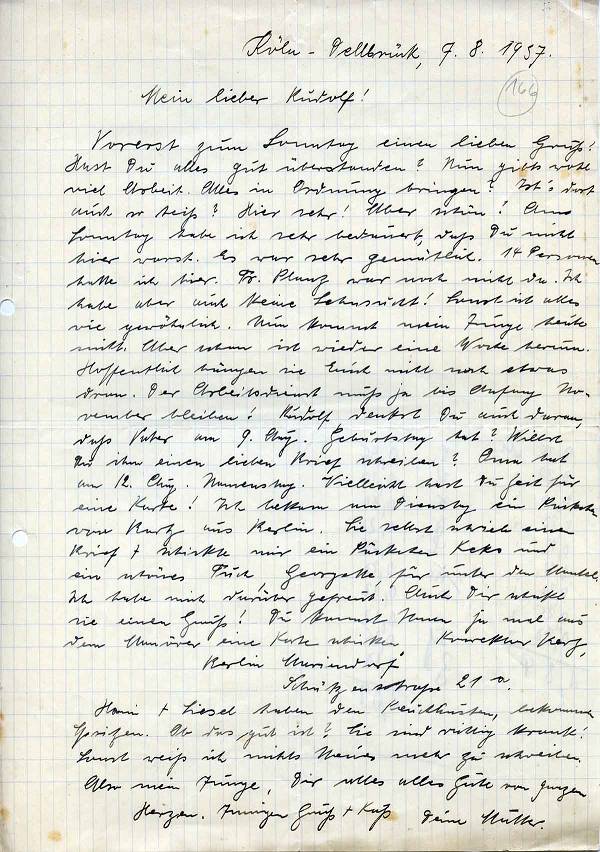 Köln - Dellbrück, 7. 8. 1937.
166
Mein lieber Rudolf!
Vorerst zum Sonntag einen lieben Gruß!
Hast Du alles gut überstanden? Nun gibts wohl
viel Arbeit. Alles in Ordnung bringen? Ist's dort
auch so heiß? Hier sehr! Aber schön! Am
Sonntag habe ich sehr bedauert, daß Du nicht
hier warst. Es war sehr gemütlich. 14 Personen
hatte ich hier. Fr. war noch nicht da. Ich
habe aber auch keine Sehnsucht! Sonst ist alles
wie gewöhnlich. Nun kommt mein Junge heute
nicht. Aber schon ist wieder eine Woche herum.
Hoffentlich hängen sie Euch nicht noch etwas
dran. Der Arbeitsdienst muß ja bis Anfang No-
vember bleiben! Rudolf denkst Du auch daran,
daß Vater am 9. Aug. Geburtstag hat? Willst
Du ihm einen lieben Brief schreiben? Oma hat
am 12. Aug. Namenstag. Vielleicht hast Du Zeit für
eine Karte! Ich bekam am Dienstag ein Päckchen
von aus Berlin. Sie selbst schrieb einen
Brief + schickte mir ein Päckchen Keks und
ein schönes Tuch, Georgette, für unter den Mantel.
Ich habe mich darüber gefreut. Auch Dir schickt
sie einen Gruß! Du kannst ihnen ja mal aus
dem Manöver eine Karte schicken.
Berlin Mariendorf.
Schützenstraße 21 a.
+ Liesel haben den Keuchhusten, bekommen
Spritzen. Ob das gut ist? Sie sind richtig krank!
Sonst weiß ich nichts Neues mehr zu schreiben.
Also mein Junge, Dir alles alles Gute von ganzem
Herzen. Innigen Gruß + Kuß Deine Mutter.